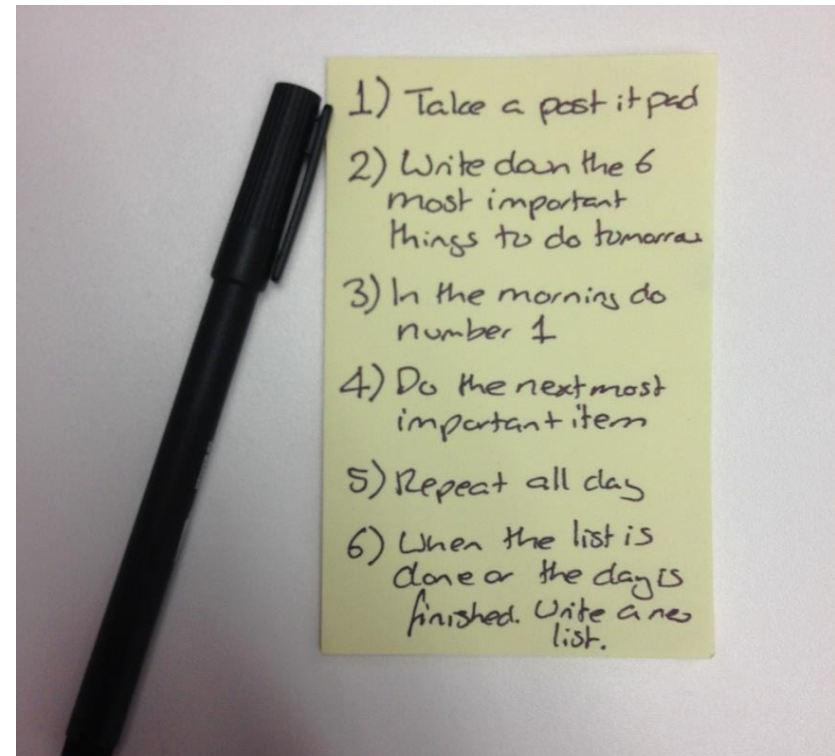 1) Take a post it pad
2) Write down the 6
most important
things to do tomorrow
3) In the morning do
number 1
4) Do the next most
important item
5) Repeat all day
6) When the list is
done or the day is
finished. Write a new
list.